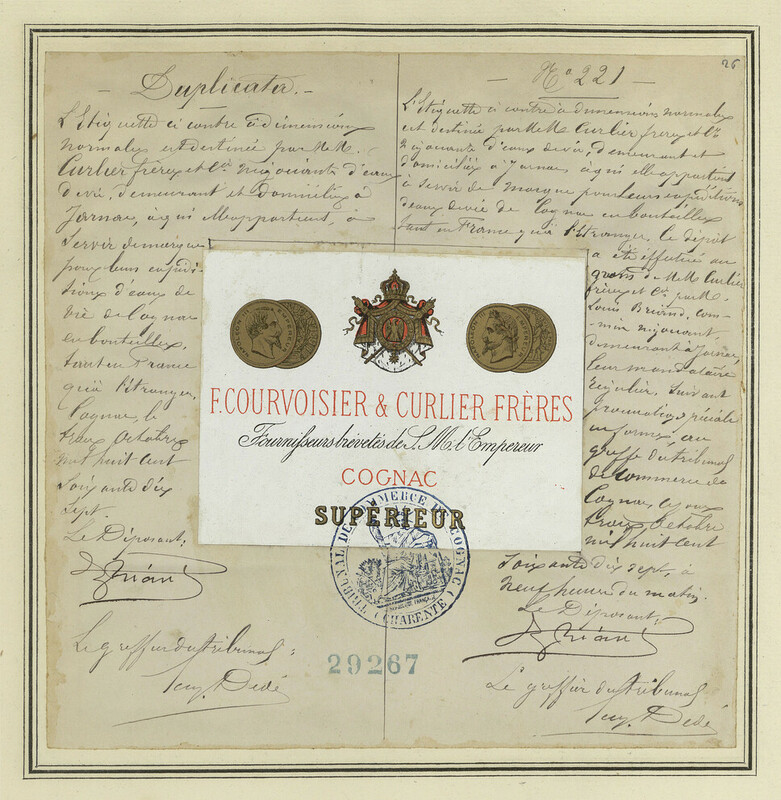 26
— Duplicata. —
L'Etiquette ci contre à dimensions
normales est destinée par MM.
Curlier frères et Cie négociants d'eaux
de vie, demeurant et domiciliés à
Jarnac, à qui elle appartient, à
servir de marque
pour leurs expédi-
tions d'eaux de
vie de Cognac
en bouteilles,
tant en France
qu'à l'étranger,
Cognac, le
treize Octobre
mil huit cent
soixante dix
sept.
Le Déposant,
Briand
Le greffier du tribunal,
Dedé
— No 221 —
L'Etiquette ci contre à dimensions normales
est destinée par MM. Curlier frères et Cie
négociants d'eaux de vie, demeurant et
domiciliés à Jarnac, à qui elle appartient
à servir de marque pour leurs expéditions
d'eaux de vie de Cognac en bouteilles
tant en France qu'à l'étranger, le dépôt
a été effectué au
nom de MM Curlier
frères et Cie par M.
Louis Briand, com-
mis négociant
demeurant à Jarnac,
leur mandataire
régulier, suivant
procuration spéciale
en forme, au
greffe du tribunal
de commerce de
Cognac, ce jour
treize Octobre
mil huit cent
soixante dix sept, à
neuf heures du matin.
Le Déposant,
Briand
Le greffier du tribunal
Dedé
NAPOLEON III EMPEREUR
NAPOLEON III EMPEREUR
F. COURVOISIER & CURLIER FRÈRES
Fournisseurs brévetés de S. M. l'Empereur
COGNAC
SUPÉRIEUR
TRIBUNAL DE COMMERCE COGNAC
(CHARENTE)
29267